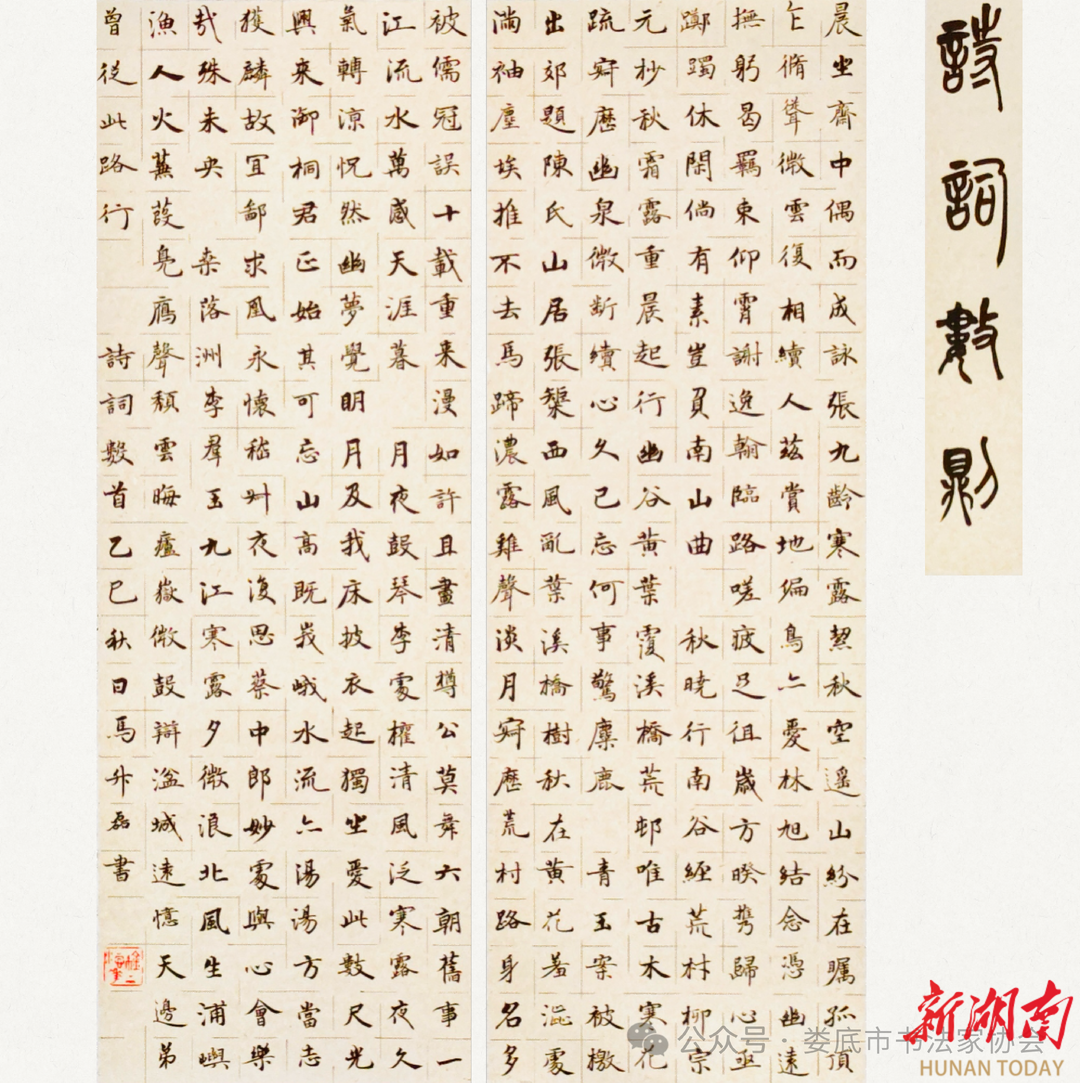 詩詞數則
晨坐齋中偶而成詠張九齡寒露絜秋空遥山紛在矚孤頂
乍脩聳微雲復相續人茲賞地偏鳥亦愛林旭結念憑幽遠
撫躬曷羈束仰霄謝逸翰臨路嗟疲足徂歲方暌攜歸心亟
躑躅休閑倘有素豈負南山曲 秋曉行南谷經荒村柳宗
元杪秋霜露重晨起行幽谷黃葉覆溪橋荒邨唯古木寒花
疏寂歷幽泉微斷續心久已忘何事驚麋鹿 青玉案被檄
出郊題陳氏山居張榘西風亂葉溪橋樹秋在黃花羞澀處
滿袖塵埃推不去馬蹄濃露雞聲淡月寂歷荒村路身名多
被儒冠誤十載重來漫如許且盡清樽公莫舞六朝舊事一
江流水萬感天涯暮 月夜鼓琴李處權清風泛寒露夜久
氣轉涼怳然幽夢覺明月及我床披衣起獨坐愛此數尺光
興來御桐君正始其可忘山高既峩峨水流亦湯湯方當志
獲麟故宜鄙求凰永懷嵇叔夜復思蔡中郎妙處與心會樂
哉殊未央 桒落洲李群玉九江寒露夕微浪北風生浦嶼
漁人火蒹葭鳧鴈聲頹雲晦廬嶽微鼓辯湓城遠憶天邊弟
曾從此路行 詩詞數首乙巳秋日馬升磊書
公众号·娄底市书法家协会
新湖南
HUNAN TODAY